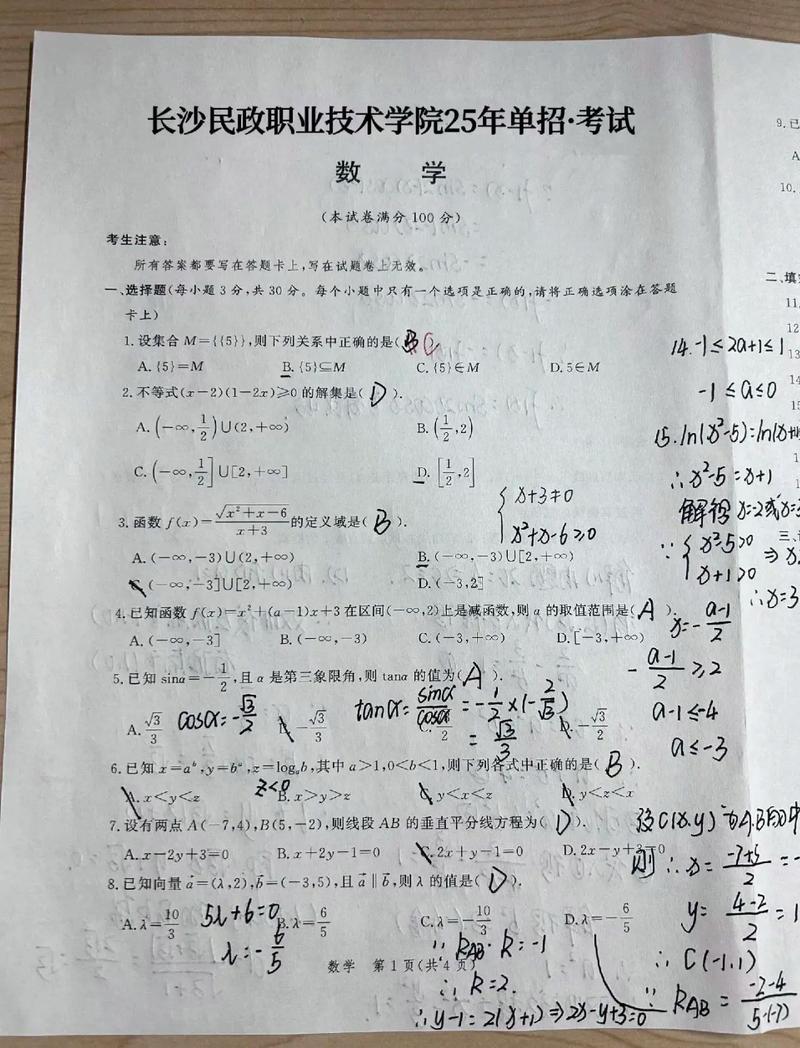 长沙民政职业技术学院25年单招·考试
数 学
(本试卷满分 100 分)
考生注意:
所有答案都要写在答题卡上,写在试题卷上无效。
一、选择题(每小题 3 分,共 30 分。每个小题中只有一个选项是正确的,请将正确选项涂在答题
卡上)
1. 设集合 M={{5}},则下列关系中正确的是( C
A. {5}=M B. {5}⊆M C. {5}∈M D. 5∈M
2. 不等式(x−2)(1−2x)≥0 的解集是( D ).
A. (−∞,1/2)∪(2,+∞) B. (1/2,2)
C. (−∞,1/2]∪[2,+∞] D. [1/2,2]
{ x+3≠0
x²+x-6≥0
3. 函数 f(x)=√(x²+x−6)/(x+3) 的定义域是( B ).
A. (−∞,−3)∪(2,+∞) B. (−∞,−3)∪[2,+∞)
C. (−∞,−3]∪[2,+∞) D. (−3,2]
4. 已知函数 f(x)=x²+(a−1)x+3 在区间(−∞,2)上是减函数,则 a 的取值范围是( A ).
A. (−∞,−3] B. (−∞,−3) C. (−3,+∞) D. [−3,+∞)
5. 已知 sinα=−1/2,且 α 是第三象限角,则 tanα 的值为( A ).
A. √3/3 B. −√3/3 C. √3/2 D. −√3/2
cosα=-√3/2
tanα=sinα/cosα=-1/2×(-2/√3)
=√3/3
6. 已知 x=aᵇ,y=bᵃ,z=logₐb,其中 a>1,0<b<1,则下列各式中正确的是( B ).
z<0
A. x<y<z B. x>y>z C. y<x<z D. y<z<x
7. 设有两点 A(−7,4),B(5,−2),则线段 AB 的垂直平分线方程为( D ).
A. x−2y+3=0 B. x+2y−1=0 C. 2x+y−1=0 D. 2x−y+3=0
8. 已知向量 a⃗=(λ,2),b⃗=(−3,5),且 a⃗∥b⃗,则 λ 的值是( D ).
A. λ=10/3 B. λ=6/5 C. λ=−10/3 D. λ=−6/5
5λ+6=0
λ=-6/5
数学 第 1 页(共 4 页)
∵ kAB·k=-1
∴ k=2.
∴ y-1=2(x+1)⇒2x-y+3=0
14. -1≤2a+1≤1
-1≤a≤0
15. ln(x²-5)=ln(x+
∴ x²-5=x+1
解得 x=-2或x=3
∵ { x²-5>0
x+1>0
∴ x=3
x=-(a-1)/2
-(a-1)/2≥2
a-1≤-4
a≤-3
设C(x,y)为A.B的中
则 ∴ x=(-7+5)/2=-
y=(4-2)/2=1
∴ C(-1,1)
∵ kAB=(-2-4)/(5-(-7))
9. 已
A
10.
二、填
11.
12
13
14
15
三、